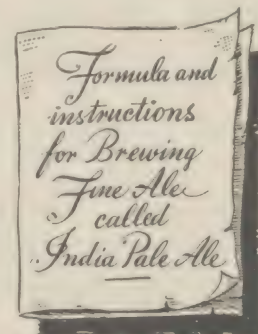 Formula and
instructions
for Brewing
Fine Ale
called
India Pale Ale